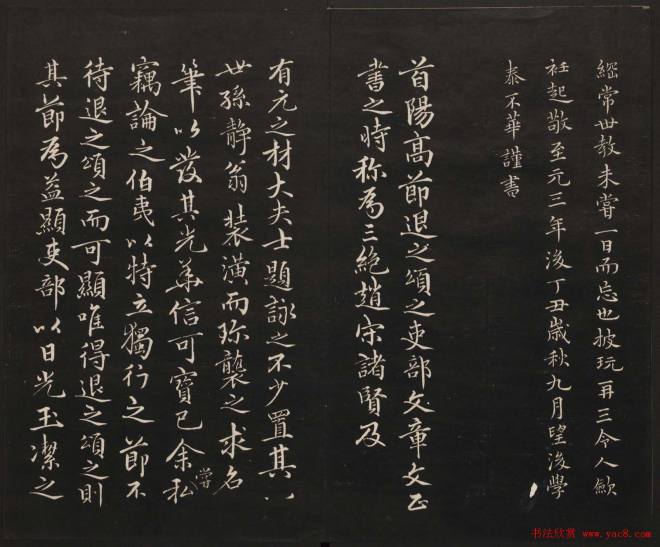 綱常世教未嘗一日而忘也披玩再三令人歛
衽起敬至元三年後丁丑歲秋九月望後學
泰不華謹書
首陽高節退之頌之吏部文章文正
書之時称為三絶趙宋諸賢及
有元之材大夫士題詠之不少置其八
世孫静翁裝潢而珎襲之求名
筆以發其光華信可寶已余私
嘗
竊論之伯夷以特立獨行之節不
待退之頌之而可顯唯得退之頌之則
其節為益顯吏部以日光玉潔之
书法欣赏 www.yac8.com